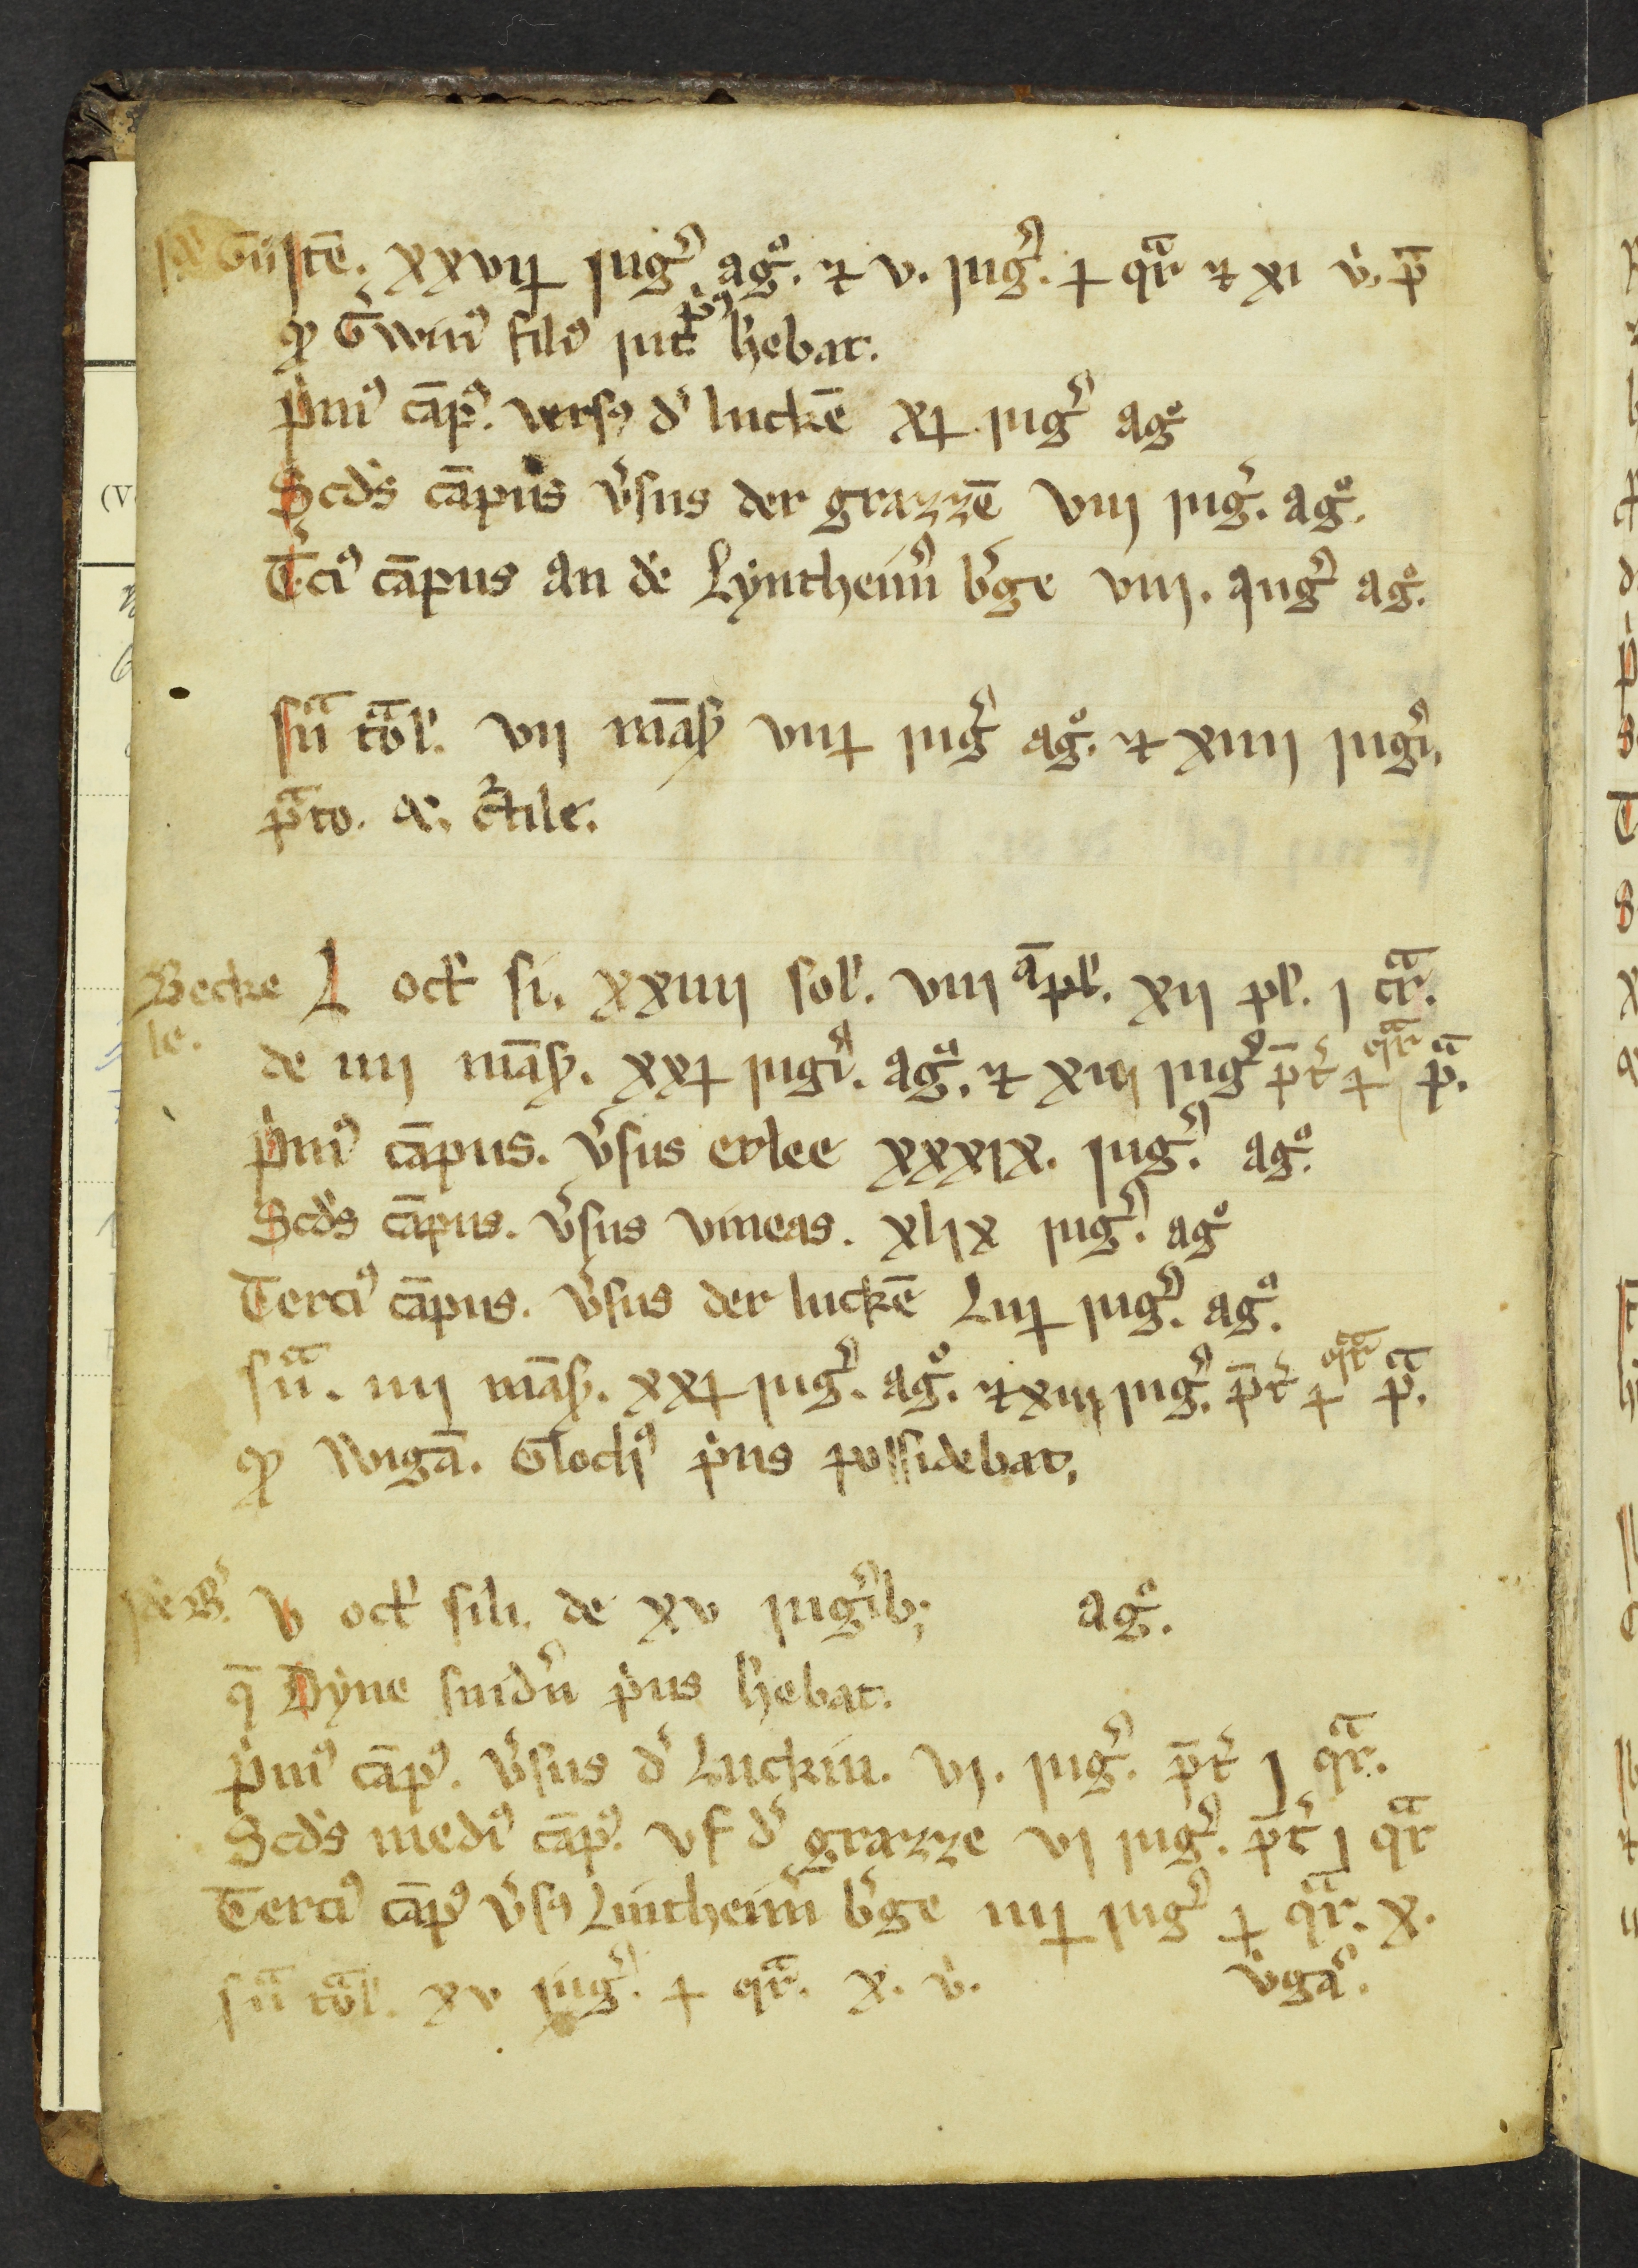 Gu̅ste̅. xxviij iug̓. ag᷒. ⁊ v. iug̓. ɉ qr̄ ⁊ xi v̓. p̄
qͦ G̓wini᷒ fili᷒ iut hebat.
p̓mi᷒ ca̅p᷒. versꝰ d̓ lucke̅ xj iug̓ ag᷒
Scds̓ ca̅pus v̓sus der grazze̅ viij iug̓. ag᷒.
T̓ci᷒ ca̅pus an de̓ Lyntheim̓ b̓ge viij. iug̓ ag᷒.
su̅a to̅l. vij ma̅ß viij iug̓ ag᷒. ⁊ xiiij iug̓i,
p̄to.
Becke L oct̓ si. xxiiij sol̓. viij a̅pl̓. xij pl̓. j cr̄.
le. de iiij ma̅ß. xxj iug̓i. ag᷒. ⁊ xiij iug̓ p̄t̓ ɉ qr̄ p̄.
p̓mi᷒ ca̅pus. v̓sus erlee xxxix. iug̓. ag᷒.
Scds̓ ca̅pus. v̓sus vineas. xlix iug̓. ag᷒
Terci᷒ ca̅pus. v̓sus der lucke̅ Liij iug̓. ag᷒.
su̅a. iiij ma̅ß. xxj iug̓. ag᷒. ⁊ xiij iug̓. p̄t̓ ɉ qr̄ p̄.
qͦ Wiga̅. Glocli᷒ p̓us possidebat,
V oct̓ sili. de xv iug̓ib; ag᷒.
q̄ Dyne snid̓n p̓us hebat.
p̓mi᷒ ca̅p᷒. v̓sus d̓ Luckin. vj. iug̓. p̄t̓ j qr̄.
Scds̓ medi᷒ ca̅p᷒. vf d̓ grazze vj iug̓. p̄t̓ j qr̄
Terci᷒ ca̅p᷒ v̓sꝰ Lintheim̓ b̓ge iiij iug̓ ɉ qr̄. x.
su̅a to̅l. xv iug̓. ɉ qr̄. x. v̓. v̓gaꝰ.